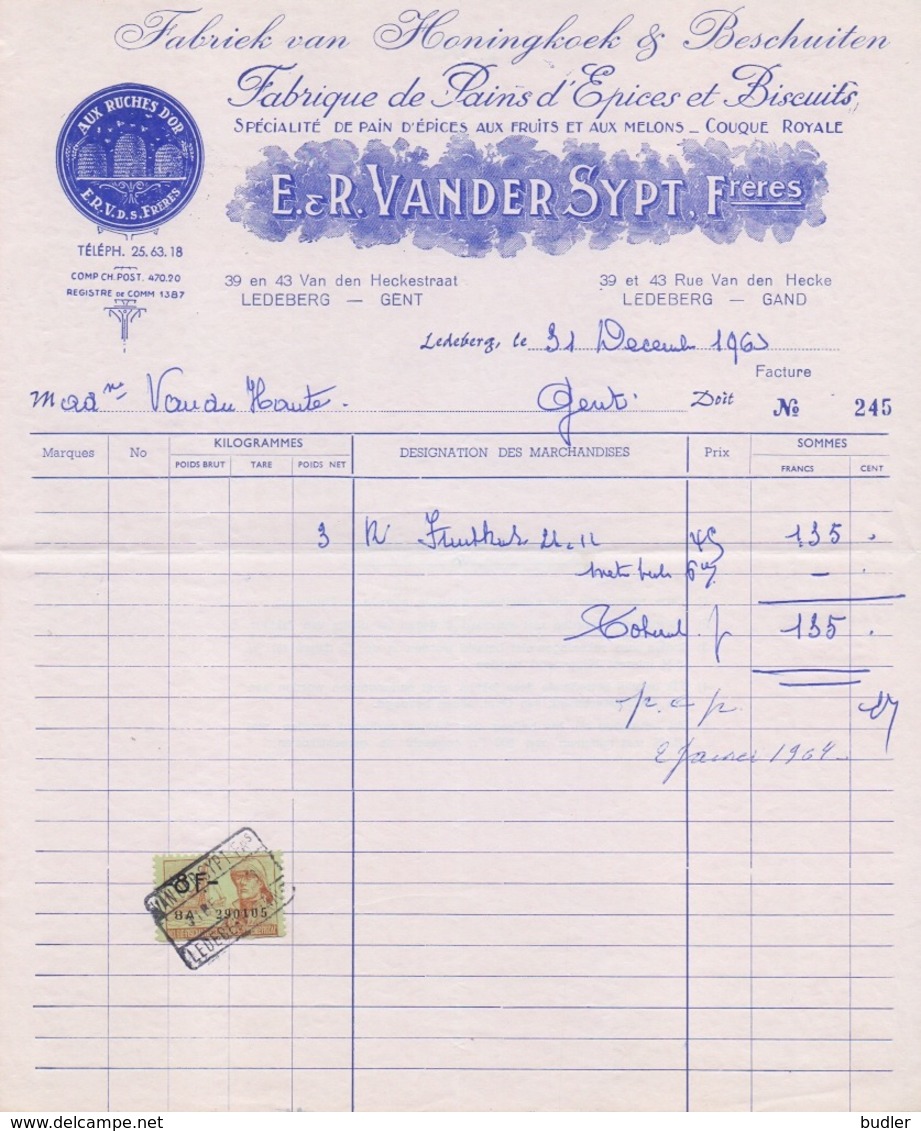 Fabriek van Honingkoek & Beschuiten
Fabrique de Pains d'Epices et Biscuits
SPÉCIALITÉ DE PAIN D'ÉPICES AUX FRUITS ET AUX MELONS _ COUQUE ROYALE
E. & R. VANDER SYPT, Frères
AUX RUCHES D'OR
E.R.V.D.S. FRÈRES
TÉLÉPH. 25.63.18
COMP CH. POST. 470.20
REGISTRE DE COMM 1387
39 en 43 Van den Heckestraat
LEDEBERG — GENT
39 et 43 Rue Van den Hecke
LEDEBERG — GAND
Ledeberg, le 31 Decemb 1963
Facture
Madme Van Gent Doit No 245
Marques No KILOGRAMMES DESIGNATION DES MARCHANDISES Prix SOMMES
POIDS BRUT TARE POIDS NET FRANCS CENT
3 45 135
6
135
p. a p.
2 1964
8F-
8A 290105
VANDERSYPT FRS
LEDEBERG
budler